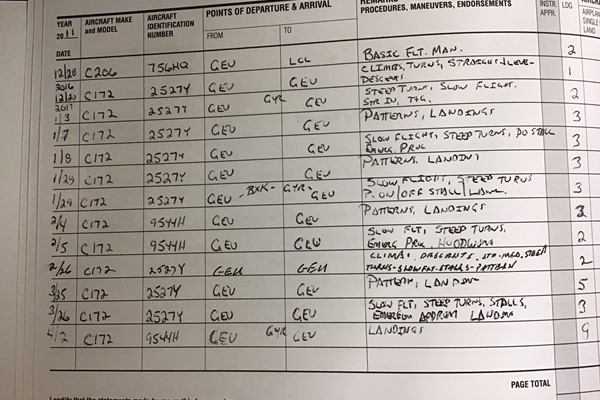 YEAR 2011 AIRCRAFT MAKE and MODEL AIRCRAFT IDENTIFICATION NUMBER POINTS OF DEPARTURE & ARRIVAL REMARKS PROCEDURES, MANEUVERS, ENDORSEMENTS INSTR. APPR. LDG
DATE FROM TO
12/28 C206 756HQ GEU LCL BASIC FLT. MAN. 2
CLIMBS, TURNS, STRAIGHT & LEVEL
2016 12/20 C172 2527Y GEU GEU DESCENTS 1
STEEP TURNS, SLOW FLIGHT.
2017 1/3 C172 2527Y GEU GYR GEU STR IN, T&G. 2
1/7 C172 2527Y GEU GEU PATTERNS, LANDINGS 3
SLOW FLIGHT, STEEP TURNS, PO STALL
1/8 C172 2527Y GEU GEU EMERG. PROC 3
1/28 C172 2527Y GEU GEU PATTERNS, LANDING 3
SLOW FLIGHT, STEEP TURNS
1/29 C172 2527Y GEU -BXK- GYR- GEU P.ON/OFF STALL/LAND. 3
2/4 C172 9544H GEU GEU PATTERNS, LANDINGS 3
SLOW FLT, STEEP TURNS,
2/5 C172 9544H GEU GEU EMERG PRC. HOODWINK 2
CLIMBS, DESCENTS, STEEP
2/26 C172 2527Y GEU GEU TURNS-SLOWFLT-STALLS-PATTERN 2
3/25 C172 2527Y GEU GEU PATTERN, LANDING 5
SLOW FLT, STEEP TURNS, STALLS,
3/26 C172 2527Y GEU GEU LANDING 3
4/2 C172 9544H GEU GYR GEU LANDINGS 9
PAGE TOTAL